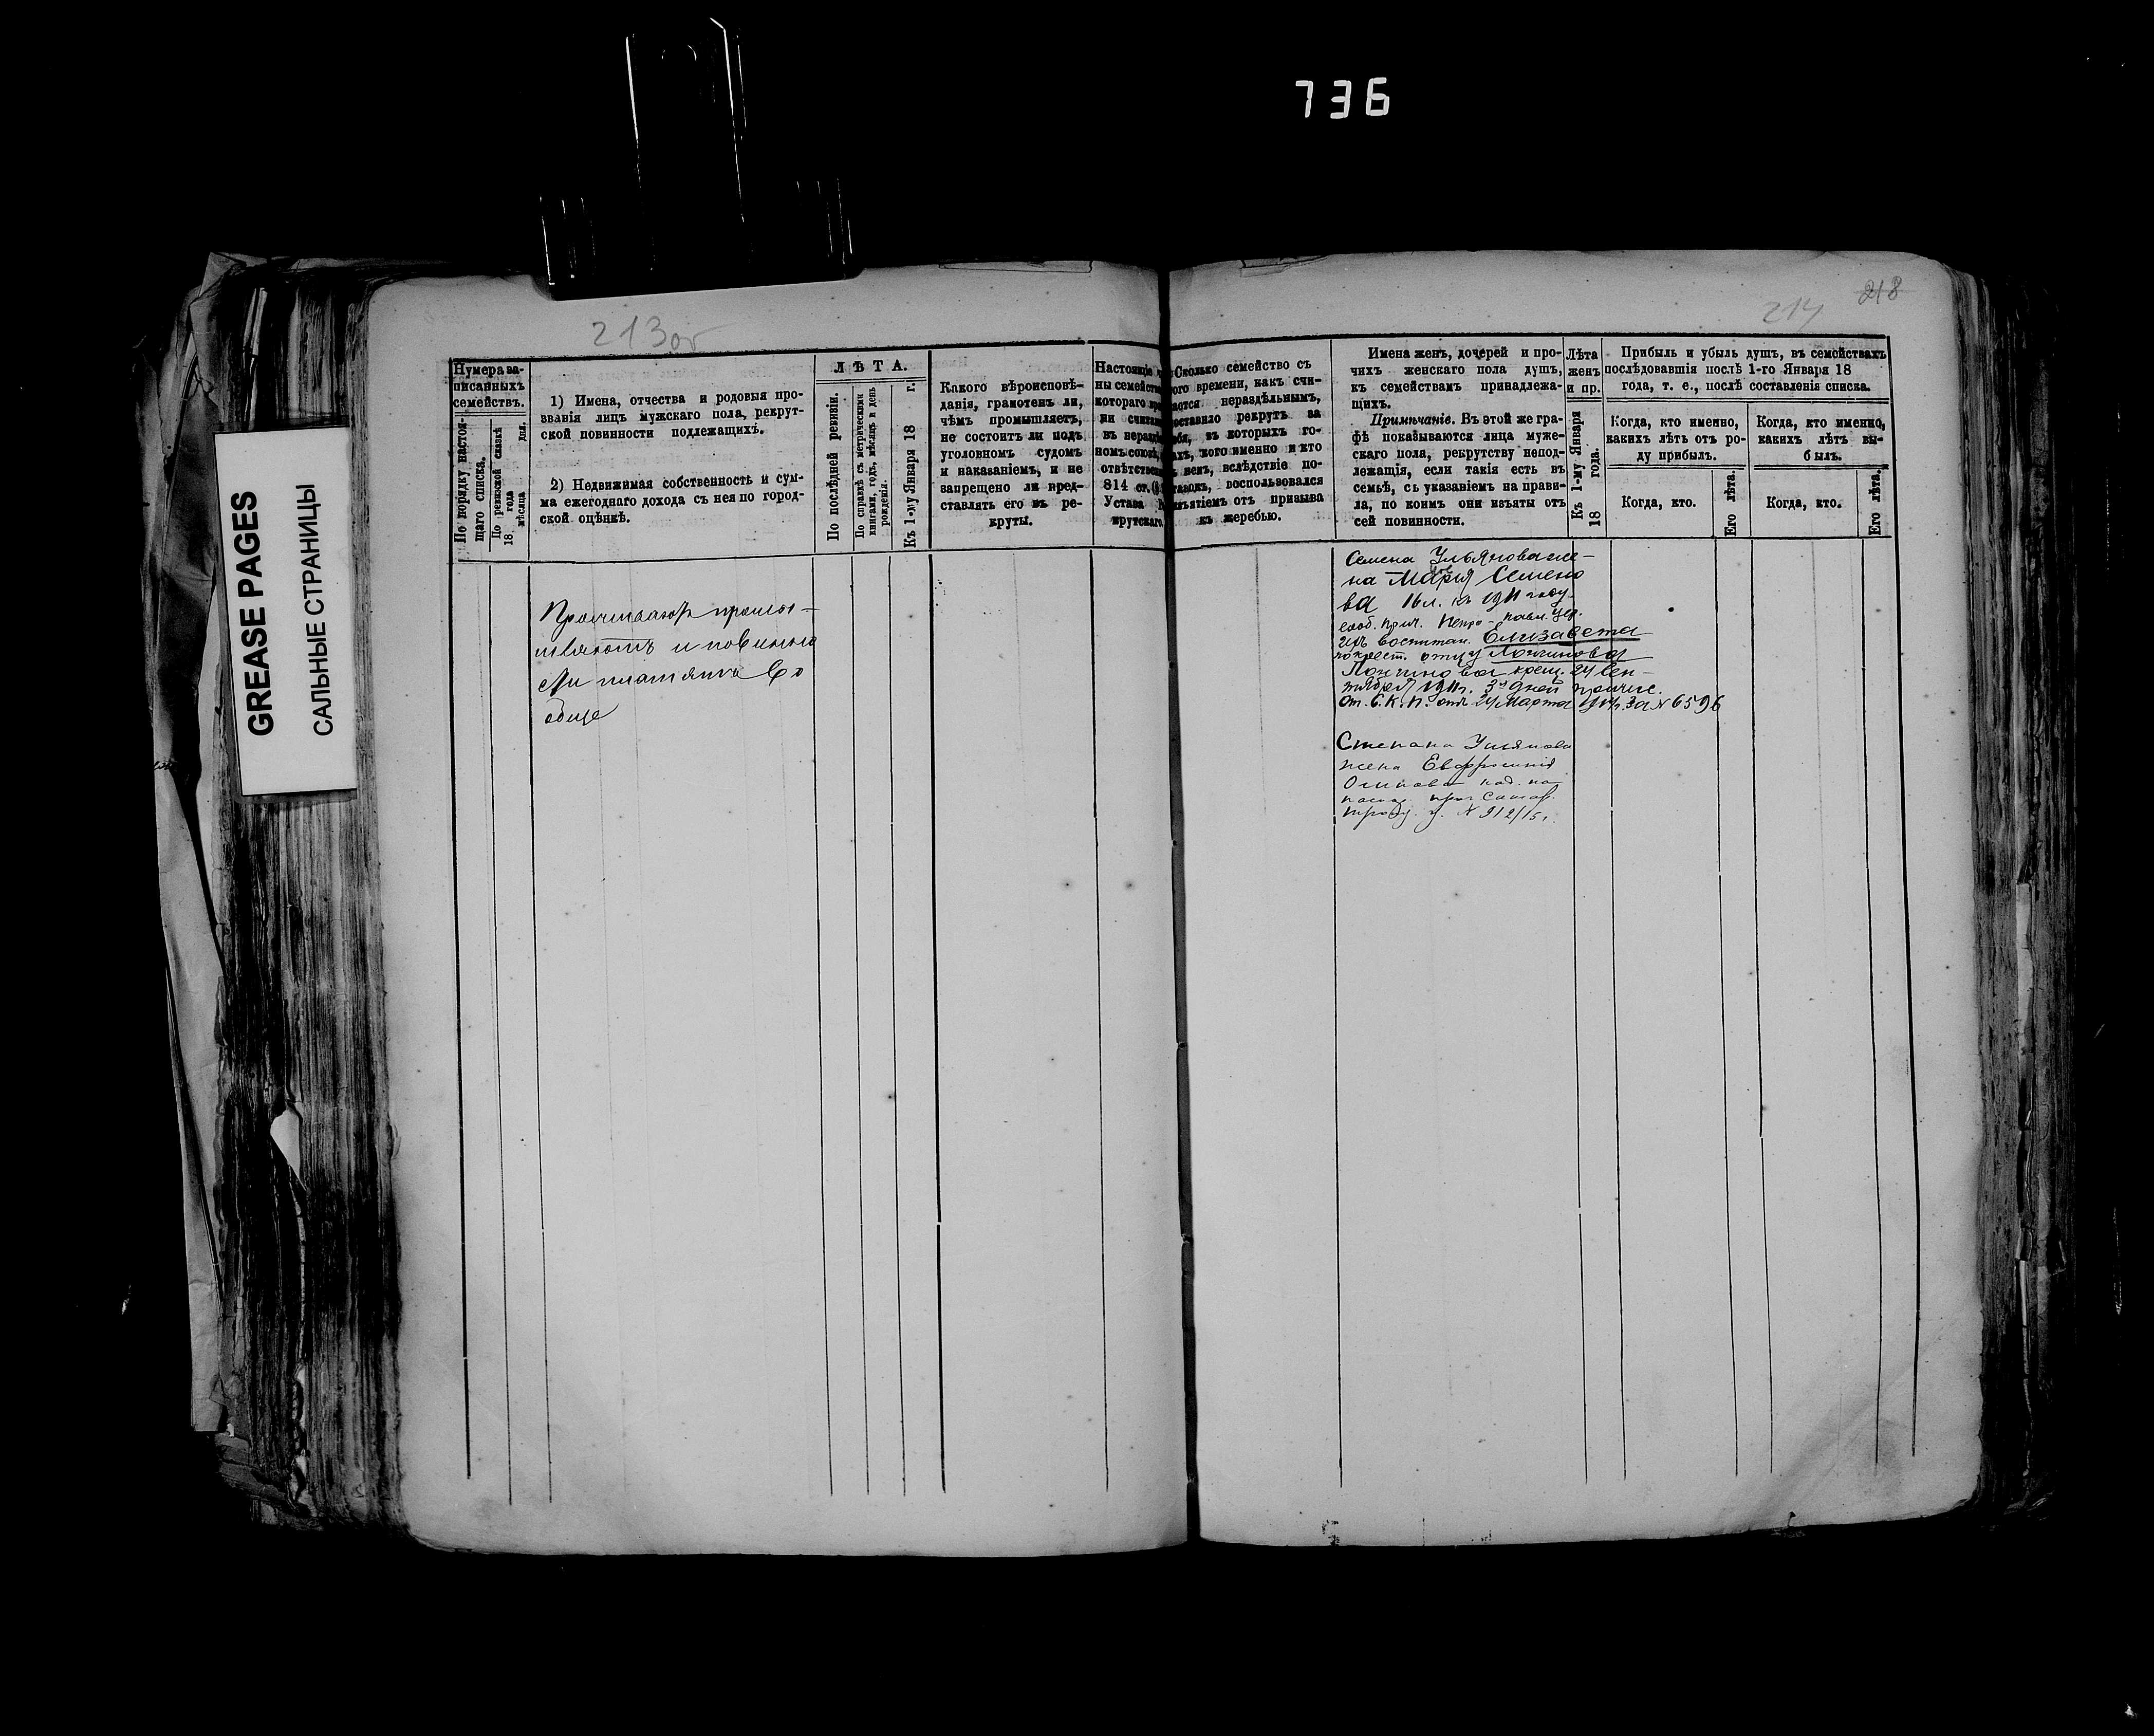 736
GREASE PAGES
САЛЬНЫЕ СТРАНИЦЫ
213об
Нумера за-
писанныхъ
семействъ.
По порядку настоя-
щаго списка.
По ревизской сказкѣ
18 года
мѣсяца дня.
1) Имена, отчества и родовыя про-
званія лицъ мужскаго пола, рекрут-
ской повинности подлежащихъ.
2) Недвижимая собственность и сум-
ма ежегоднаго дохода съ нея по город-
ской оцѣнкѣ.
ЛѢТА.
По послѣдней ревизіи.
По справкѣ съ метрическими
книгами, годъ, мѣсяцъ и день
рожденія.
Къ 1-му Января 18 г.
Какого вѣроисповѣ-
данія, грамотенъ ли,
чѣмъ промышляетъ,
не состоитъ ли подъ
уголовномъ судомъ
и наказаніемъ, и не
запрещено ли пред-
ставлять его въ ре-
круты.
Настоящіе
ны семейства
котораго
ни считал
въ нераздѣ
номъ союзѣ,
отвѣтствен
814 ст.
Устава
крутскаго
промы-
шляютъ и повинно
сти платятъ во
обще
214
218
Сколько семейство съ
ого времени, какъ счи-
тается нераздѣльнымъ,
оставило рекрутъ за
себя, въ которыхъ го-
ахъ, кого именно и кто
вслѣдствіе по-
воспользовался
изъятіемъ отъ призыва
къ жеребью.
Имена женъ, дочерей и про-
чихъ женскаго пола душъ,
къ семействамъ принадлежа-
щихъ.
Примѣчаніе. Въ этой же гра-
фѣ показываются лица муже-
скаго пола, рекрутству непод-
лежащія, если такія есть въ
семьѣ, съ указаніемъ на прави-
ла, по коимъ они изъяты отъ
сей повинности.
Лѣта
женъ
и пр.
Къ 1-му Января
18 года.
Прибыль и убыль душъ, въ семействахъ
послѣдовавшія послѣ 1-го Января 18
года, т. е., послѣ составленія списка.
Когда, кто именно,
какихъ лѣтъ отъ ро-
ду прибылъ.
Когда, кто именно,
какихъ лѣтъ вы-
былъ.
Когда, кто.
Его лѣта.
Когда, кто.
Его лѣта.
Семена Ульянова же-
на Мария Семено
ва 16 л. къ 1911 году
воспитан. Елизавета
отцу Логгинова
Логгинова крещ. 24 Сен-
тября 1911 г. 3х дней причис.
От. С. К. П. отъ 29 Марта за № 6596
Степана Ульянова
жена Евфросинія
Осипова
№ 912/15 г.